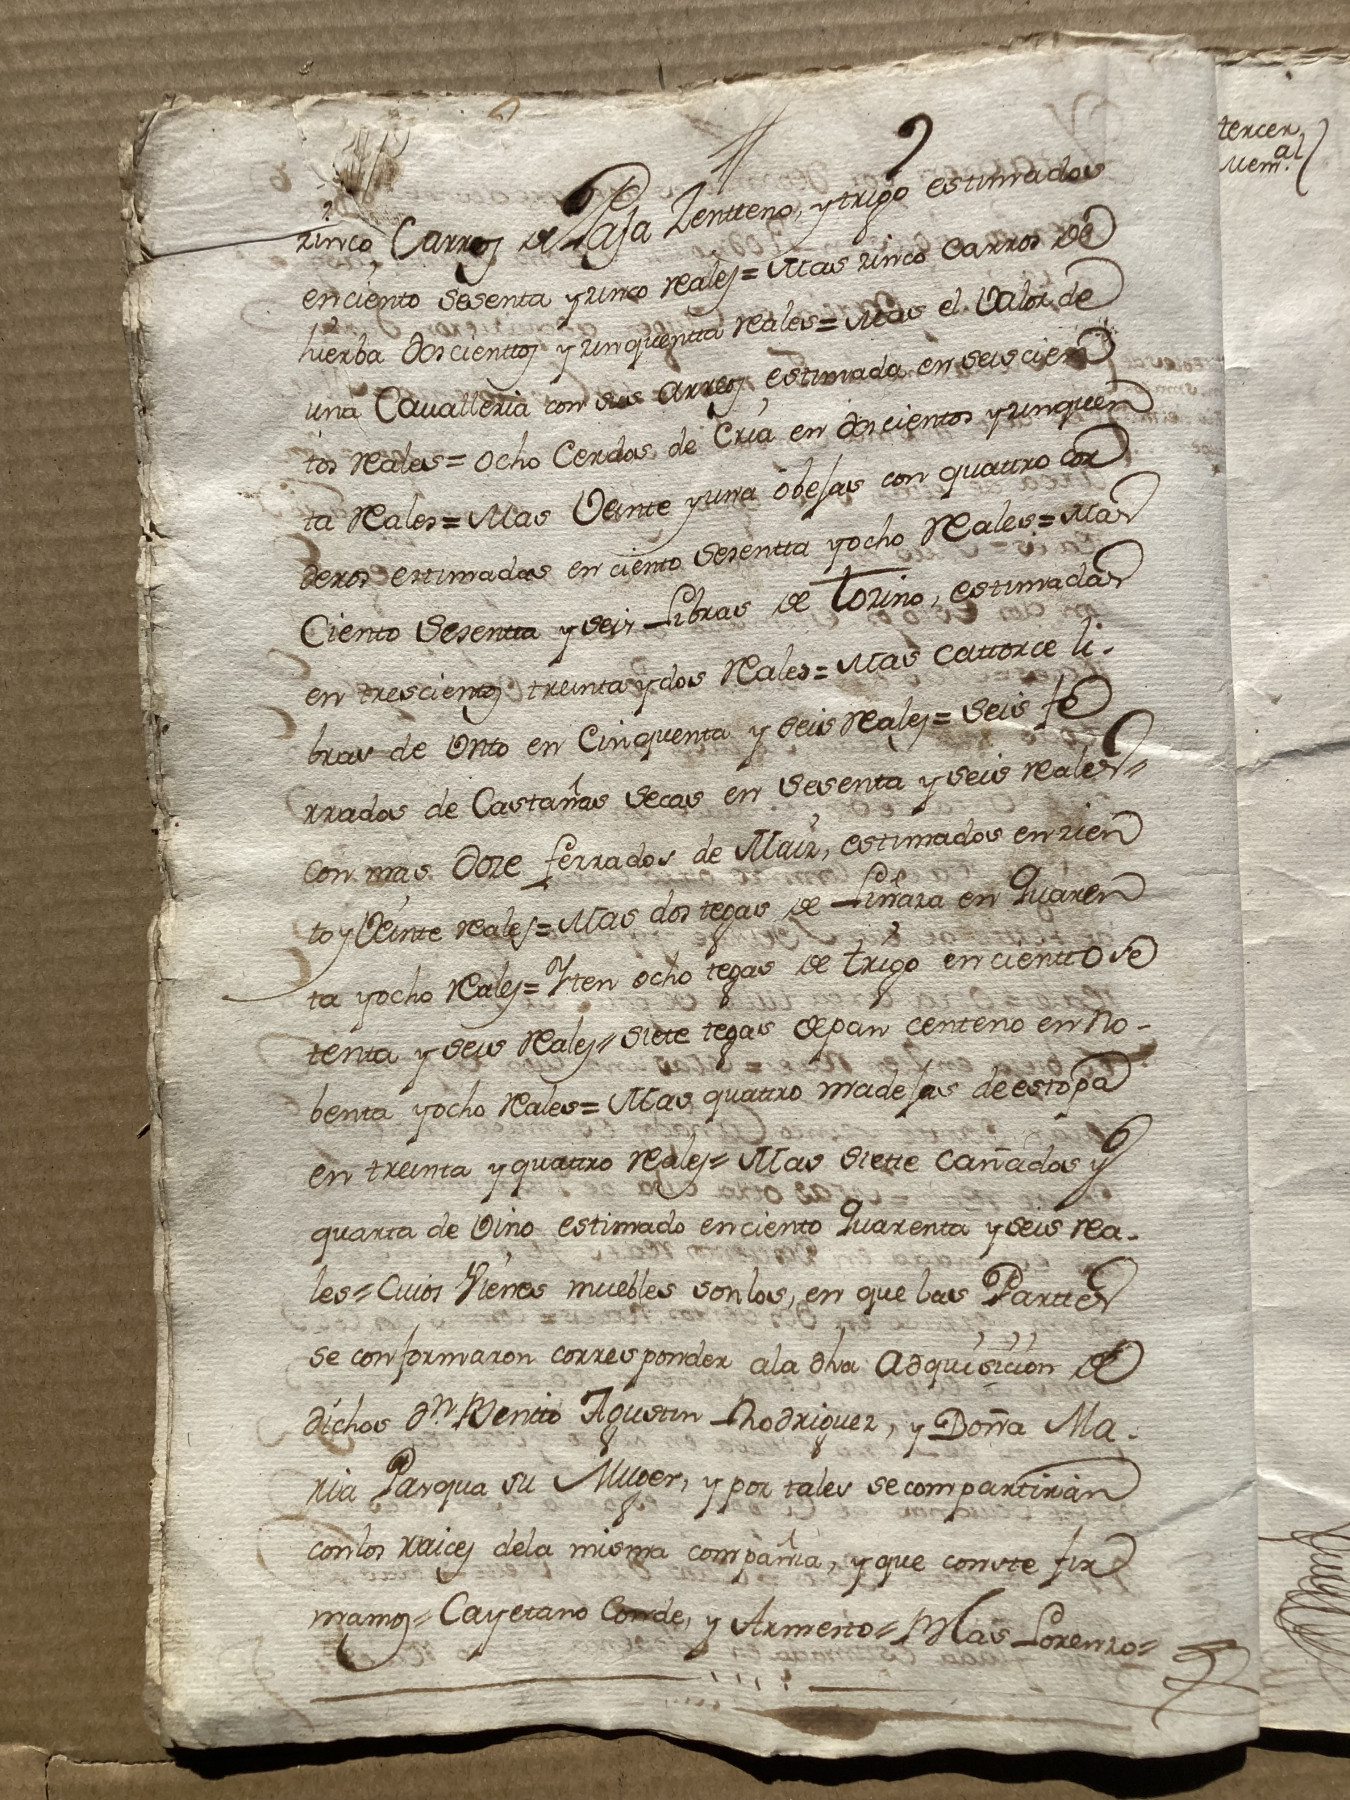 zinco, Carros de Paja Zentteno, y trigo estimados
en ciento sesenta y zinco reales = Mas zinco carros de
hierba doscienttos y zinquentta reales = Mas el Valor de
una Cavalleria con sus arreos, estimada en seiscien
tos reales = ocho Cerdos de Cria en doscientos y zinquen
ta reales = Mas Veinte y una obejas con quattro cor
deros estimadas en ciento sesentta y ocho reales = Mas
Ciento sesentta y seis Libras de tozino, estimadas
en trescientos treinta y dos reales = Mas cattorce li-
bras de Unto en Cinquenta y seis reales = seis fe
rrados de Castañas secas en sesenta y seis reales =
con mas doze ferrados de Maiz, estimados en zien
to y Veinte reales = Mas dos tegas de Liñaza en quaren
ta y ocho reales = Yten ocho tegas de trigo en cientto se
tenta y seis reales = siete tegas de pan centeno en no-
benta y ocho reales = Mas quattro madejas de estopa
en treinta y quattro reales = Mas siette cañados y
quarta de Vino estimado en ciento quarenta y seis rea-
les = Cuios Vienes muebles son los, en que las Parttes
se conformaron corresponder a la dha Adquisicion de
dichos dn. Benitto Agustin Rodriguez, y Doña Ma-
ria Pasqua su Muger, y por tales se compartirán
con los raices de la misma compañia, y que conste fir
mamos = Cayetano Conde, y Armesto = Mas Lorenzo =
tercer
Mem.al